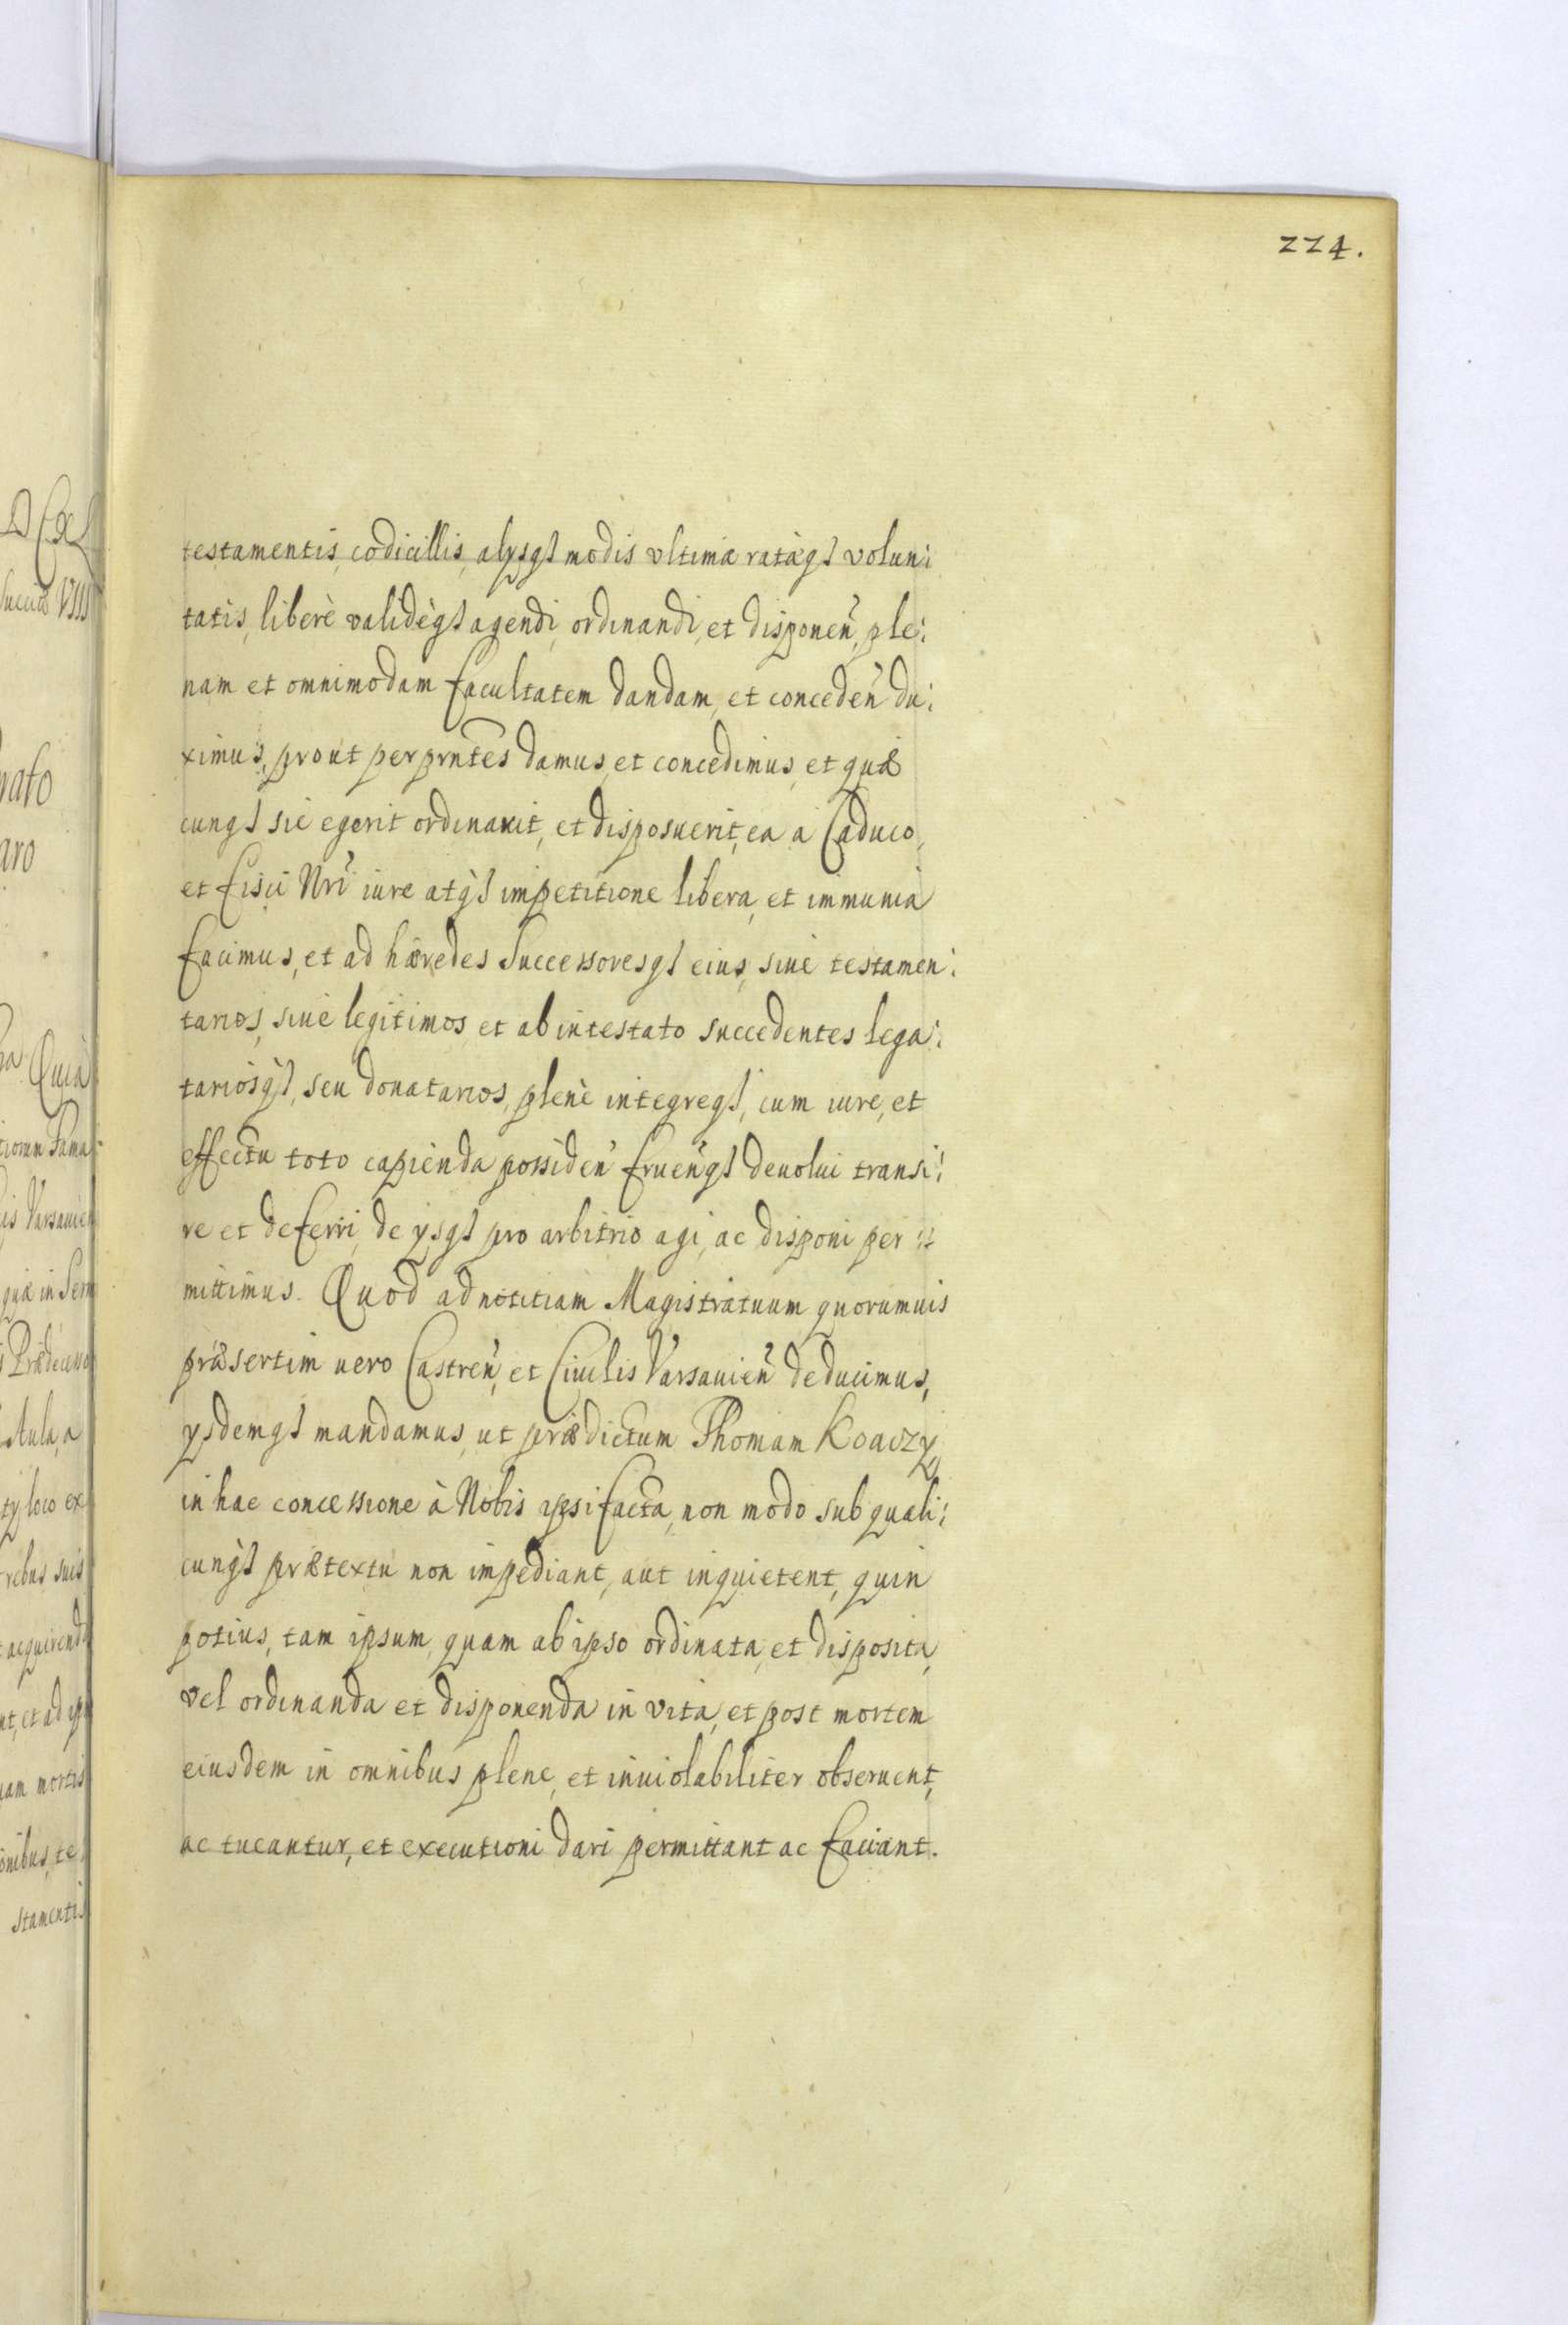 224.
testamentis, codicillis, alysqȝ modis vltimæ ratæqȝ volun:
tatis, liberè validèqȝ agendi, ordinandi, et disponeñ, ple:
nam et omnimodam facultatem dandam, et concedeñ du:
ximus, prout per prñtes damus, et concedimus, et quæ
cunqȝ sic egerit ordinauit, et disposuerit, ea a Caduco,
et fisci Nrĩ iure atqȝ impetitione libera, et immunia
facimus, et ad hæredes Successoresqȝ eius, siue testamen:
tarios, siue legitimos et ab intestato succedentes lega:
tariosqȝ, seu donatarios, plenè integreqȝ, cum iure, et
effectu toto capienda possideñ frueñqȝ deuolui transi:
re et deferri, de ysqȝ pro arbitrio agi, ac disponi per:
mittimus. Quod ad notitiam Magistratuum quorumuis
præsertim uero Castreñ, et Ciuilis Varsauieñ deducimus,
ysdemqȝ mandamus, ut prædictum Thomam Koaczy
in hac concessione à Nobis ipsi facta, non modo sub quali:
cunqȝ prætextu non impediant, aut inquietent, quin
potius, tam ipsum, quam ab ipso ordinata, et disposita,
vel ordinanda et disponenda in vita, et post mortem
eiusdem in omnibus plene, et inuiolabiliter obseruent,
ac tueantur, et executioni dari permittant ac faciant.
Quia
is Varsauien
quæ in Sern
Aula, a
ty loco ex
rebus suis
acquirendi
nt, et ad ip
uam mortis
onibus, te
stamentis